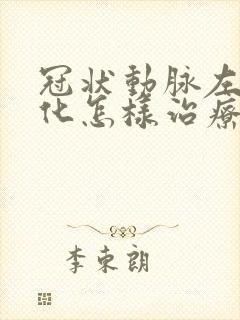 冠状動脉左
化怎樣治療
李東朗